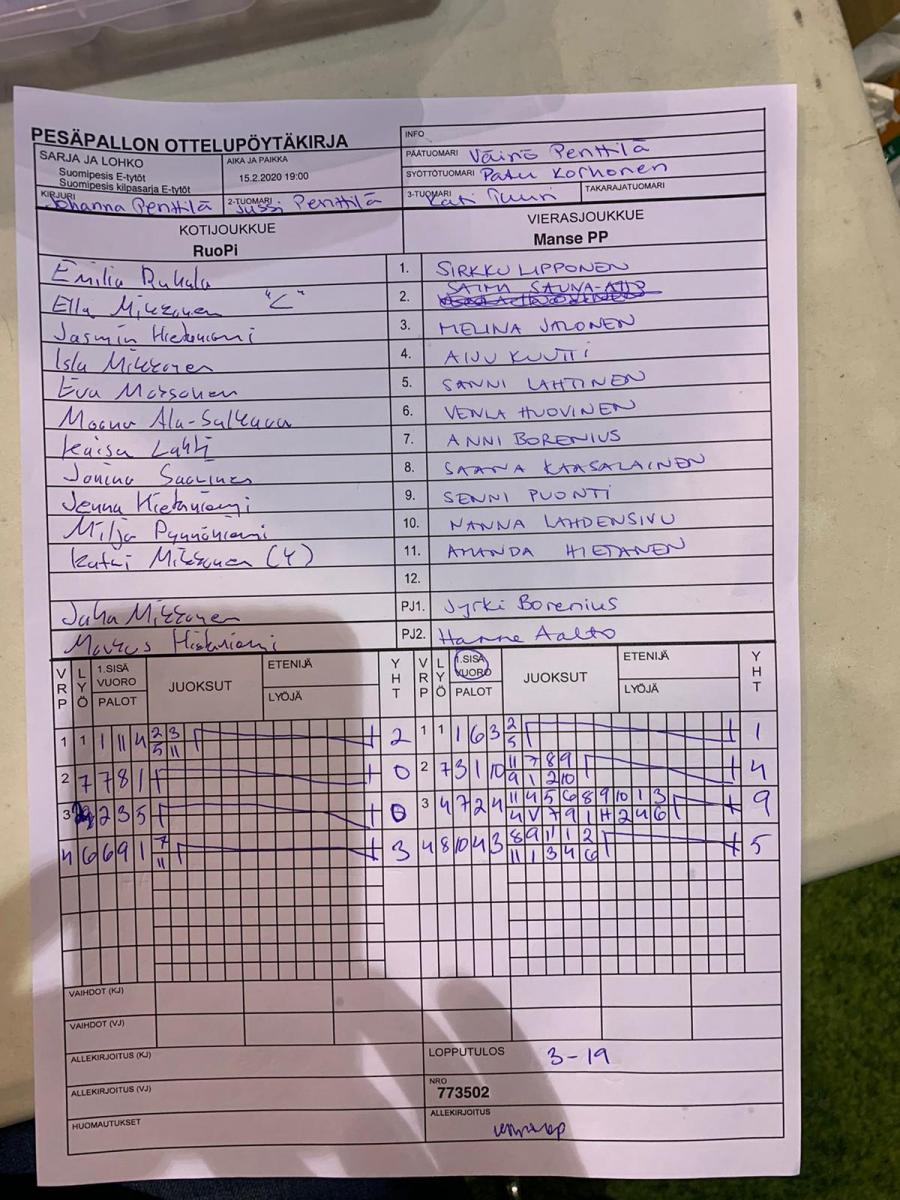 PESÄPALLON OTTELUPÖYTÄKIRJA
INFO
SARJA JA LOHKO
Suomipesis E-tytöt
Suomipesis kilpasarja E-tytöt
AIKA JA PAIKKA
15.2.2020 19:00
PÄÄTUOMARI Väinö Penttilä
SYÖTTÖTUOMARI Patu Korhonen
KIRJURI Johanna Penttilä
2-TUOMARI Jussi Penttilä
3-TUOMARI Kati
TAKARAJATUOMARI
KOTIJOUKKUE
RuoPi
VIERASJOUKKUE
Manse PP
Emilia 1. SIRKKU LIPPONEN
Ella Mikkonen "C" 2. SAIMA SAUNA-AHO
Jasmin Hietaniemi 3. MELINA JALONEN
Isla Mikkonen 4. AIJU KUUTTI
Eva 5. SANNI LAHTINEN
6. VENLA HUOVINEN
Kaisa Lahti 7. ANNI BORENIUS
Janina Saarinen 8. SAANA KAASALAINEN
Jenna Hietaniemi 9. SENNI PUONTI
Milja Pynnöniemi 10. NANNA LAHDENSIVU
Katri Mikkonen (Y) 11. AMANDA HIETANEN
12.
Juha Mikkonen PJ1. Jyrki Borenius
Markus Hietaniemi PJ2. Hanne Aalto
VRP LYÖ 1.SISÄ VUORO PALOT JUOKSUT ETENIJÄ LYÖJÄ YHT
VRP LYÖ 1.SISÄ VUORO PALOT JUOKSUT ETENIJÄ LYÖJÄ YHT
1 1 1 11 4 2 3 2 1 1 1 6 3 2 1
5 11 5
2 7 7 8 1 0 2 7 3 1 10 11 7 8 9 4
9 1 2 10
3 2 3 5 0 3 4 7 2 4 11 4 5 6 8 9 10 1 3 9
4 V 7 9 1 H 2 4 6
4 6 6 9 1 7 3 4 8 10 4 3 8 9 11 1 2 5
11 11 1 3 4 6
VAIHDOT (KJ)
VAIHDOT (VJ)
ALLEKIRJOITUS (KJ)
LOPPUTULOS 3-19
ALLEKIRJOITUS (VJ)
NRO
773502
HUOMAUTUKSET
ALLEKIRJOITUS